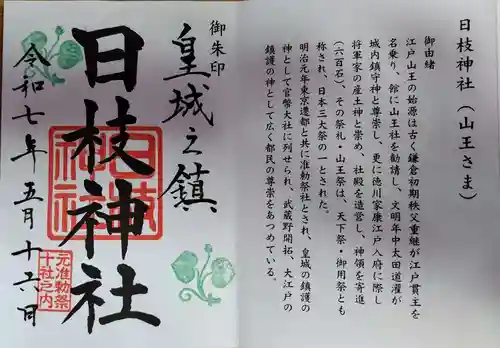 日枝神社(山王さま)
御由緒
江戸山王の始源は古く鎌倉初期秩父重継が江戸貫主を
名乗り、館に山王社を勧請し、文明年中太田道灌が
城内鎮守神と尊崇し、更に徳川家康江戸入府に際し
将軍家の産土神と崇め、社殿を造営し、神領を寄進
(六百石)、その祭礼・山王祭は、天下祭・御用祭とも
称され、日本三大祭の一とされた。
明治元年東京遷都と共に准勅祭社とされ、皇城の鎮護の
神として官幣大社に列せられ、武蔵野開拓、大江戸の
鎮護の神として広く都民の尊崇をあつめている。
御朱印
皇城之鎮
日枝神社
日枝神社
元准勅祭
十社之内
令和七年五月十六日